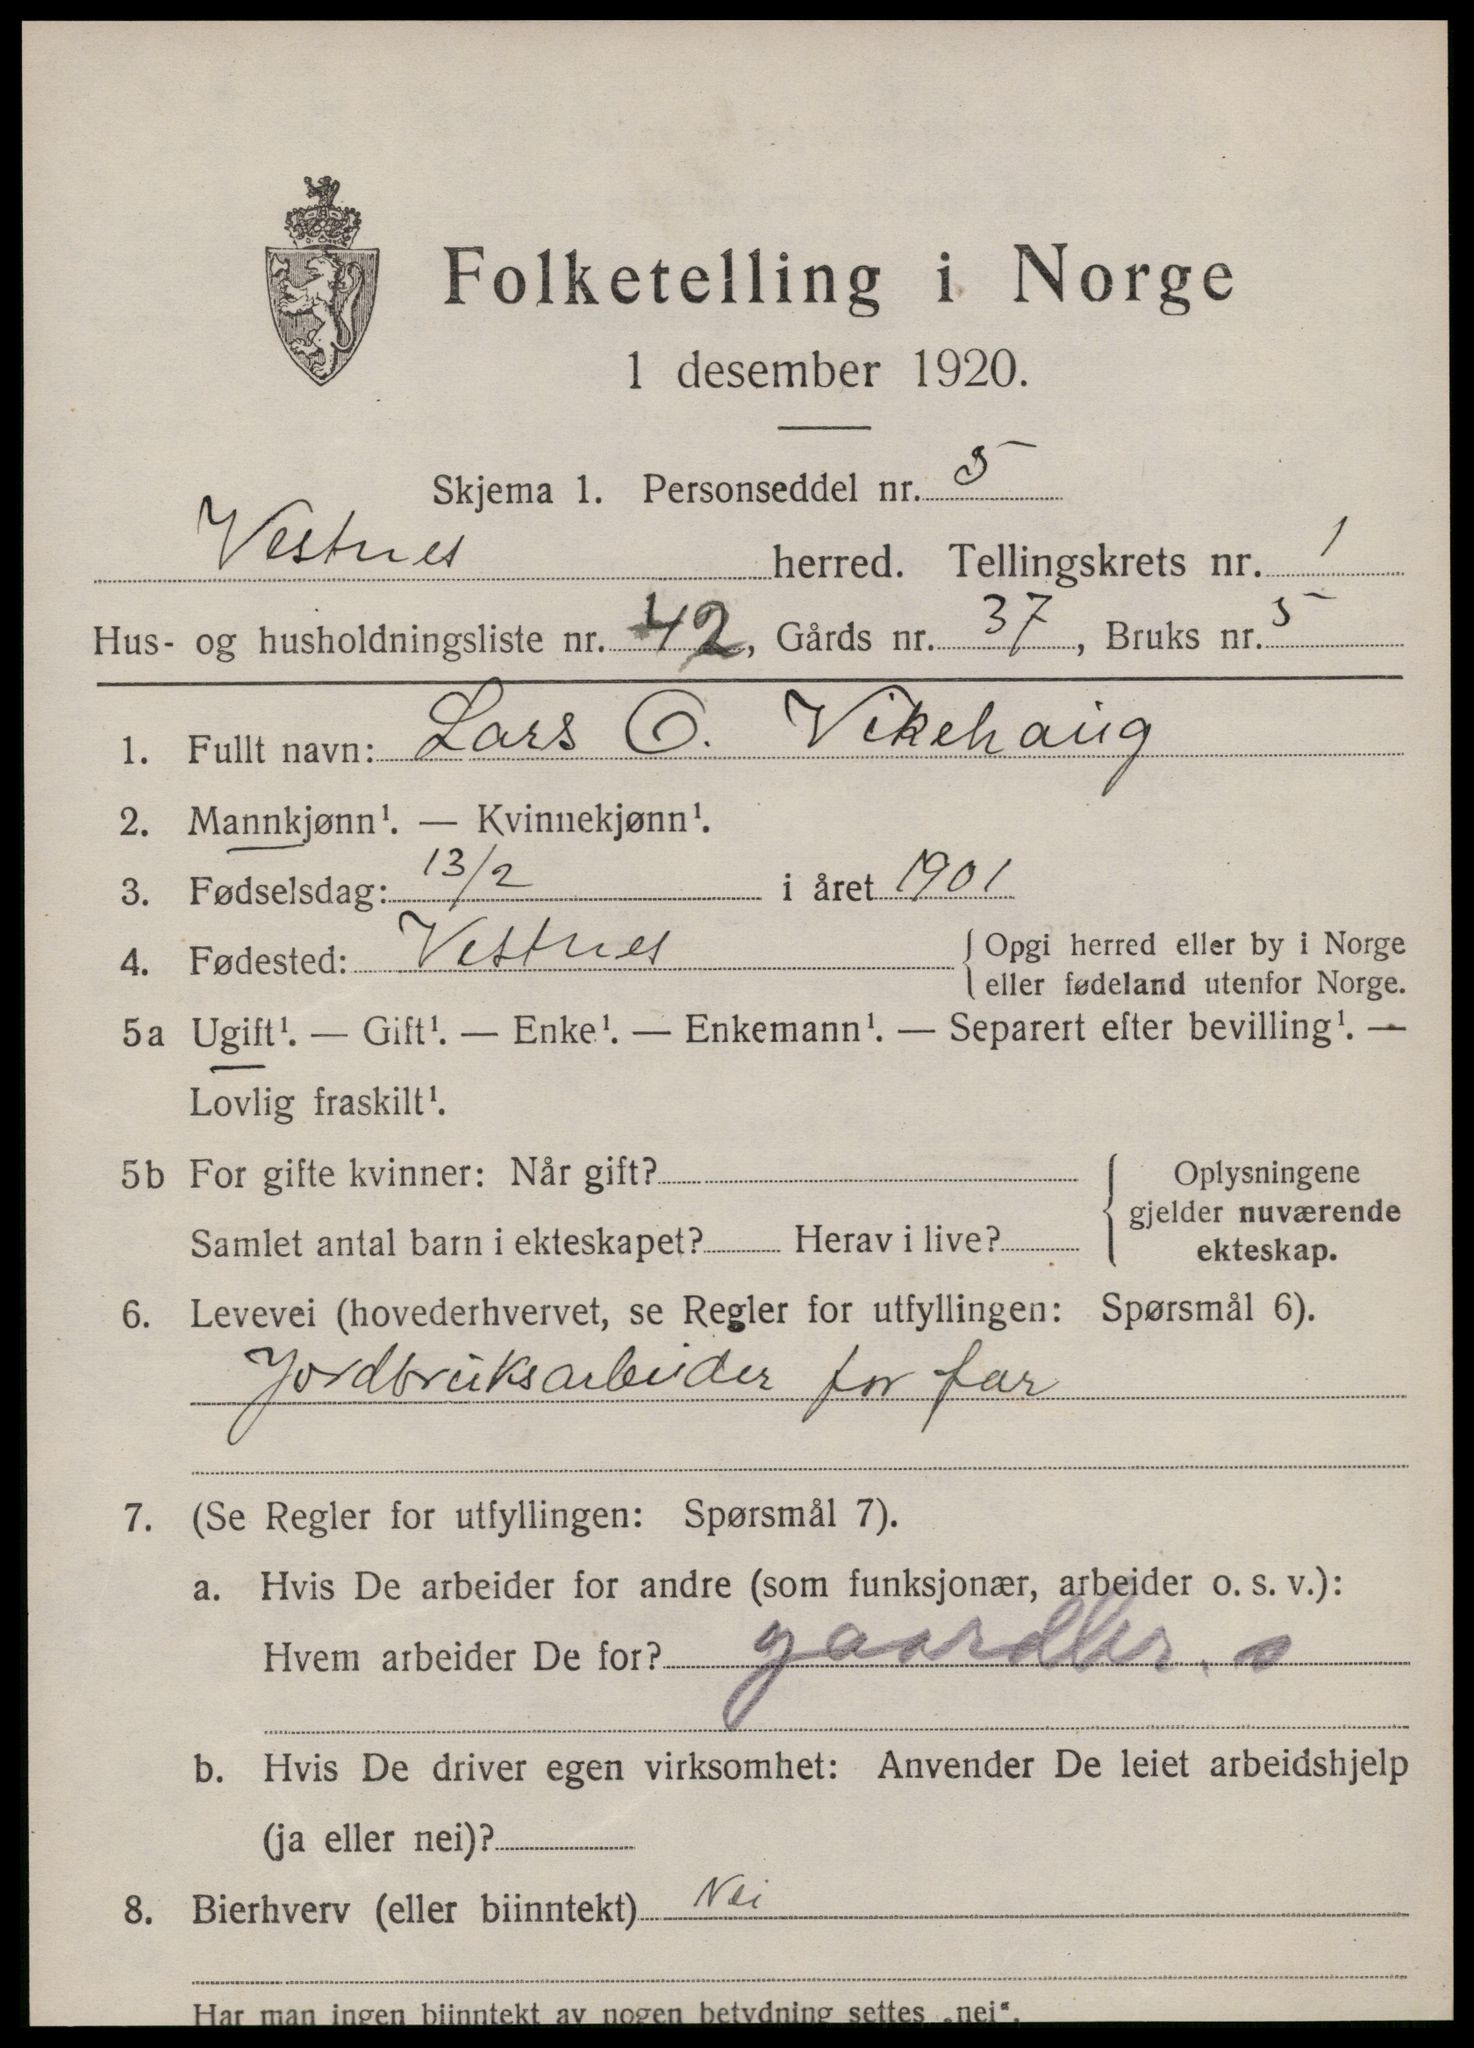 Folketelling i Norge
1 desember 1920.
Skjema 1. Personseddel nr. 5
Vestnes herred. Tellingskrets nr. 1
Hus- og husholdningsliste nr. 42, Gårds nr. 37, Bruks nr. 5
1. Fullt navn: Lars O. Vikehaug
2. Mannkjønn¹. — Kvinnekjønn¹.
3. Fødselsdag: 13/2 i året 1901
4. Fødested: Vestnes { Opgi herred eller by i Norge
eller fødeland utenfor Norge.
5a Ugift¹. — Gift¹. — Enke¹. — Enkemann¹. — Separert efter bevilling¹. —
Lovlig fraskilt¹.
5b For gifte kvinner: Når gift?
Samlet antal barn i ekteskapet? Herav i live?
{ Oplysningene
gjelder nuværende
ekteskap.
6. Levevei (hovederhvervet, se Regler for utfyllingen: Spørsmål 6).
Jordbruksarbeider for far
7. (Se Regler for utfyllingen: Spørsmål 7).
a. Hvis De arbeider for andre (som funksjonær, arbeider o. s. v.):
Hvem arbeider De for?
b. Hvis De driver egen virksomhet: Anvender De leiet arbeidshjelp
(ja eller nei)?
8. Bierhverv (eller biinntekt) Nei
Har man ingen biinntekt av nogen betydning settes „nei“.